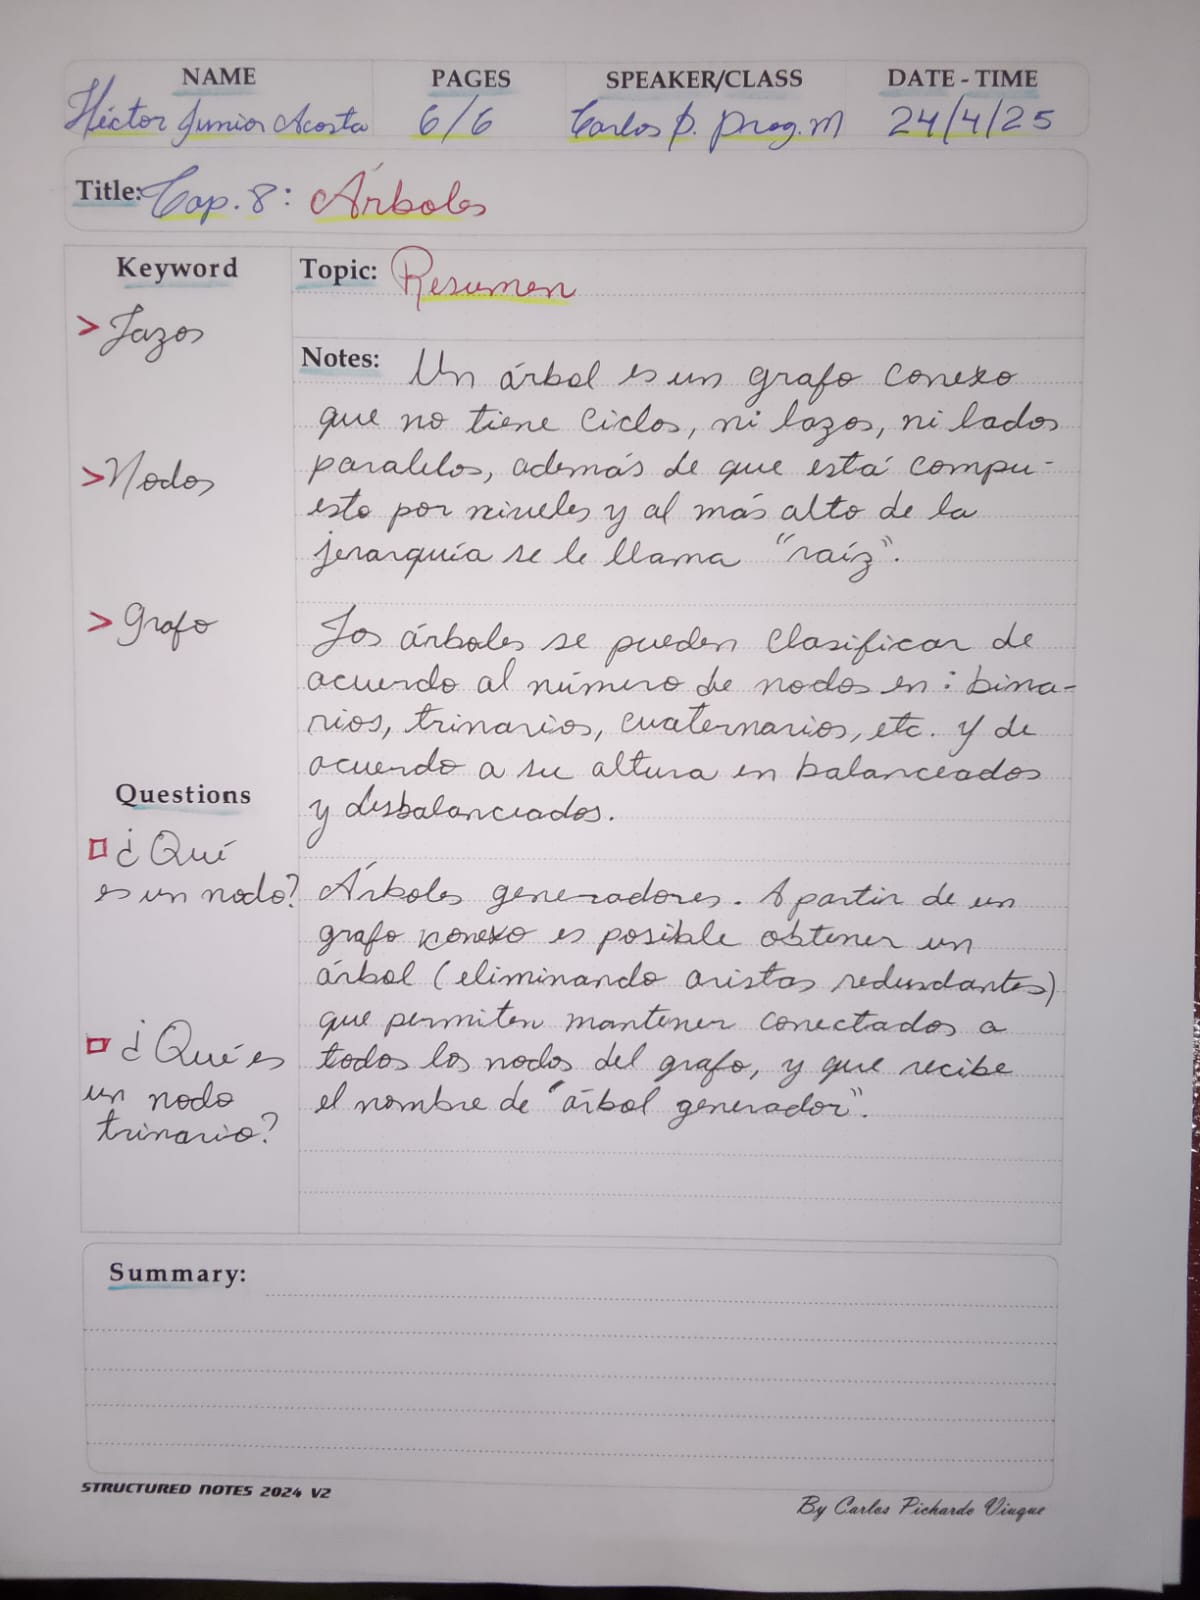 NAME PAGES SPEAKER/CLASS DATE - TIME
Héctor Junior Acosta 6/6 Carlos P. Prog. M 24/4/25
Title: Cap. 8: Árboles
Keyword
> Lazos
> Nodos
> Grafo
Questions
¿Qué
es un nodo?
¿Qué es
un nodo
trinario?
Topic: Resumen
Notes: Un árbol es un grafo conexo
que no tiene ciclos, ni lazos, ni lados
paralelos, además de que está compu-
esto por niveles y al más alto de la
jerarquía se le llama "raíz".
Los árboles se pueden clasificar de
acuerdo al número de nodos en: bina-
rios, trinarios, cuaternarios, etc. Y de
acuerdo a su altura en balanceados
y desbalanceados.
Árboles generadores. A partir de un
grafo conexo es posible obtener un
árbol (eliminando aristas redundantes)
que permiten mantener conectados a
todos los nodos del grafo, y que recibe
el nombre de "árbol generador".
Summary:
STRUCTURED NOTES 2024 V2
By Carlos Pichardo Viuque